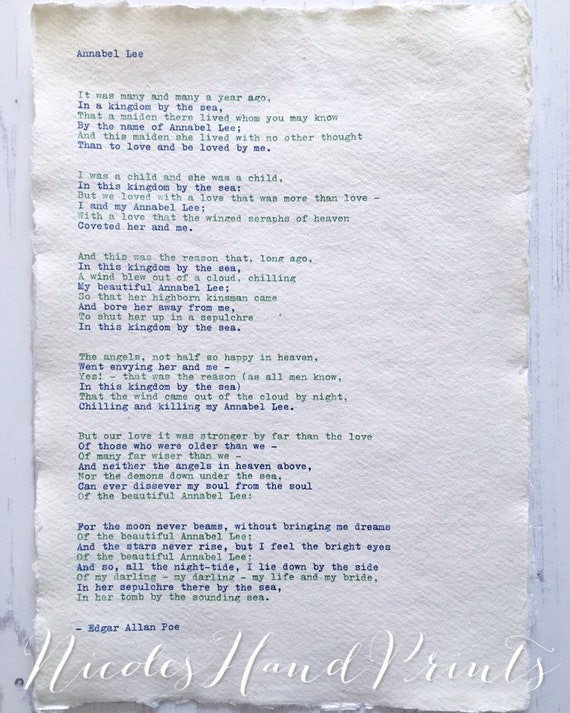 Annabel Lee
It was many and many a year ago,
In a kingdom by the sea,
That a maiden there lived whom you may know
By the name of Annabel Lee;
And this maiden she lived with no other thought
Than to love and be loved by me.
I was a child and she was a child,
In this kingdom by the sea:
But we loved with a love that was more than love -
I and my Annabel Lee;
With a love that the winged seraphs of heaven
Coveted her and me.
And this was the reason that, long ago,
In this kingdom by the sea,
A wind blew out of a cloud, chilling
My beautiful Annabel Lee;
So that her highborn kinsman came
And bore her away from me,
To shut her up in a sepulchre
In this kingdom by the sea.
The angels, not half so happy in heaven,
Went envying her and me -
Yes! - that was the reason (as all men know,
In this kingdom by the sea)
That the wind came out of the cloud by night,
Chilling and killing my Annabel Lee.
But our love it was stronger by far than the love
Of those who were older than we -
Of many far wiser than we -
And neither the angels in heaven above,
Nor the demons down under the sea,
Can ever dissever my soul from the soul
Of the beautiful Annabel Lee:
For the moon never beams, without bringing me dreams
Of the beautiful Annabel Lee;
And the stars never rise, but I feel the bright eyes
Of the beautiful Annabel Lee;
And so, all the night-tide, I lie down by the side
Of my darling - my darling - my life and my bride,
In her sepulchre there by the sea,
In her tomb by the sounding sea.
- Edgar Allan Poe
NicolesHandPrints